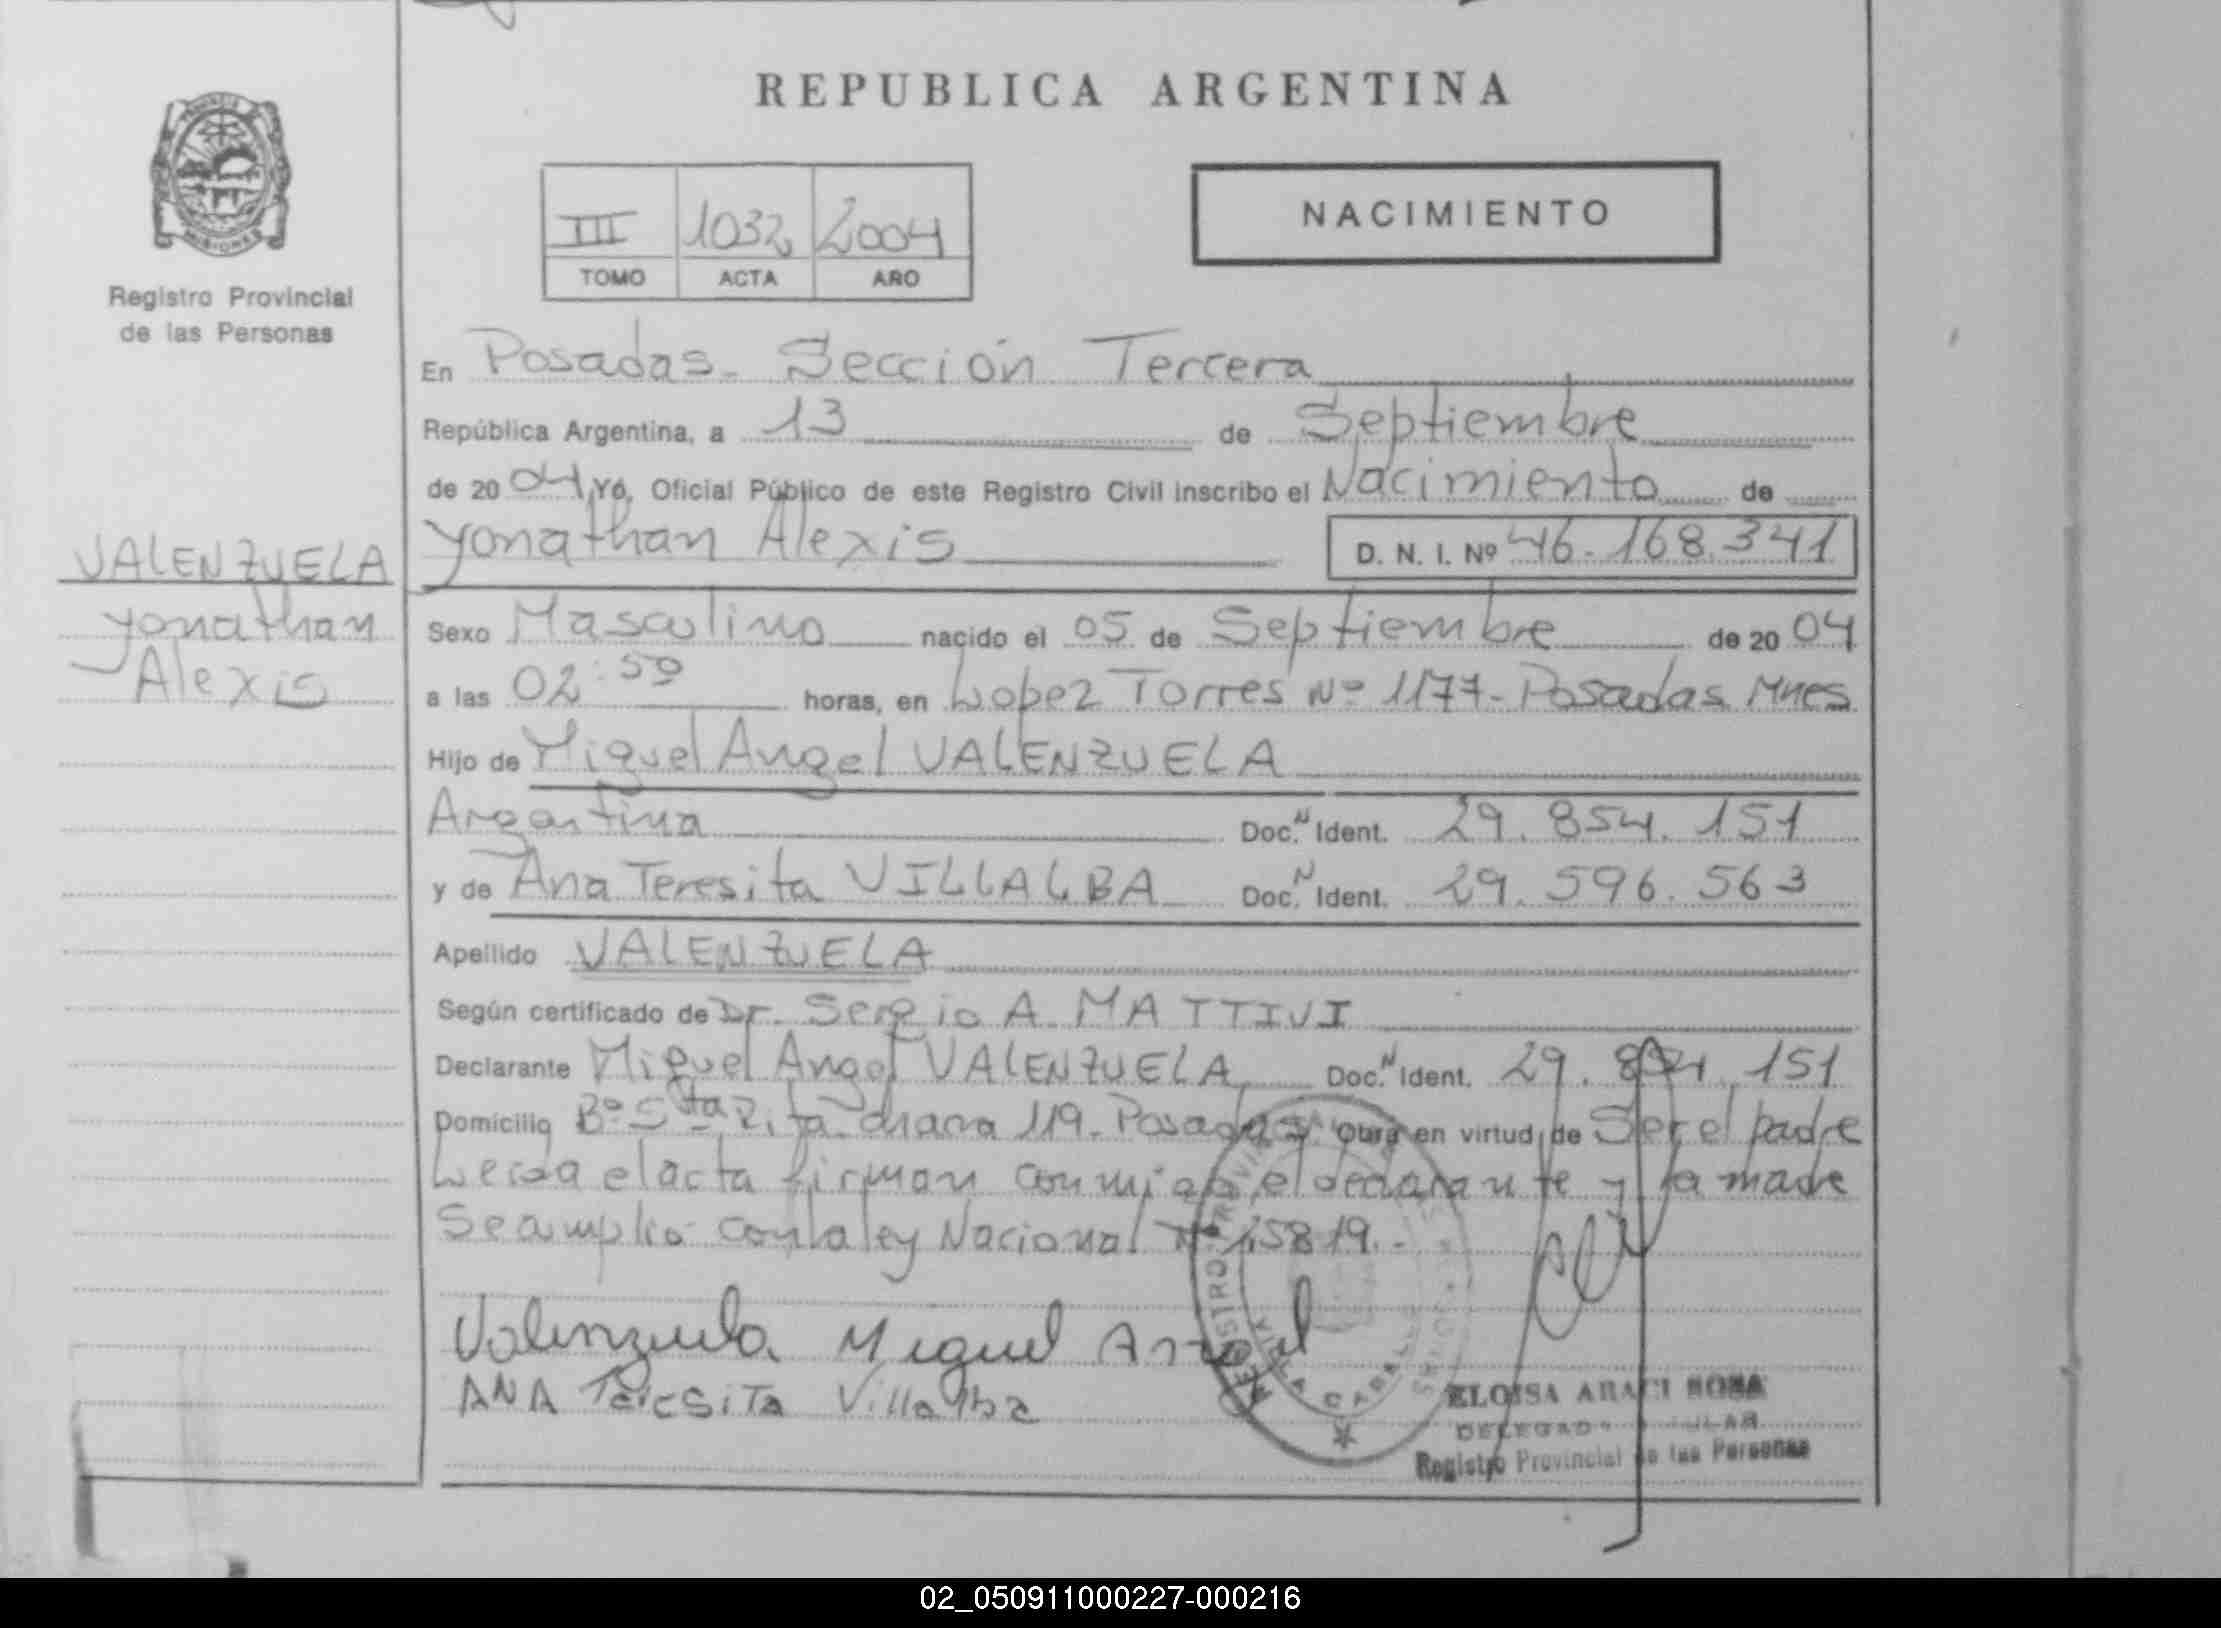 REPUBLICA ARGENTINA
PROVINCIA
MISIONES
Registro Provincial
de las Personas
III 1032 2004
TOMO ACTA AÑO
NACIMIENTO
En Posadas - Sección Tercera
República Argentina, a 13 de Septiembre
de 20 04, Yo, Oficial Público de este Registro Civil inscribo el Nacimiento de
Yonathan Alexis D. N. I. Nº 46.168.341
VALENZUELA
Yonathan
Alexis
Sexo Masculino nacido el 05 de Septiembre de 20 04
a las 02:50 horas, en Lopez Torres Nº 1177 - Posadas Mnes
Hijo de Miguel Angel VALENZUELA
Argentina Doc. N Ident. 29.854.151
y de Ana Teresita VILLALBA Doc. N Ident. 29.596.563
Apellido VALENZUELA
Según certificado de Dr. Sergio A. MATTIVI
Declarante Miguel Angel VALENZUELA Doc. N Ident. 29.854.151
Domicilio Bº Sta Rita chacra 119 - Posadas Obra en virtud de Ser el padre
Leida el acta firman conmigo el declarante y la madre
Se amplio con la ley Nacional Nº
Valenzuela Miguel Angel
ANA Teresita Villalba
ELOISA ARACI
Registro Provincial de las Personas
02_050911000227-000216